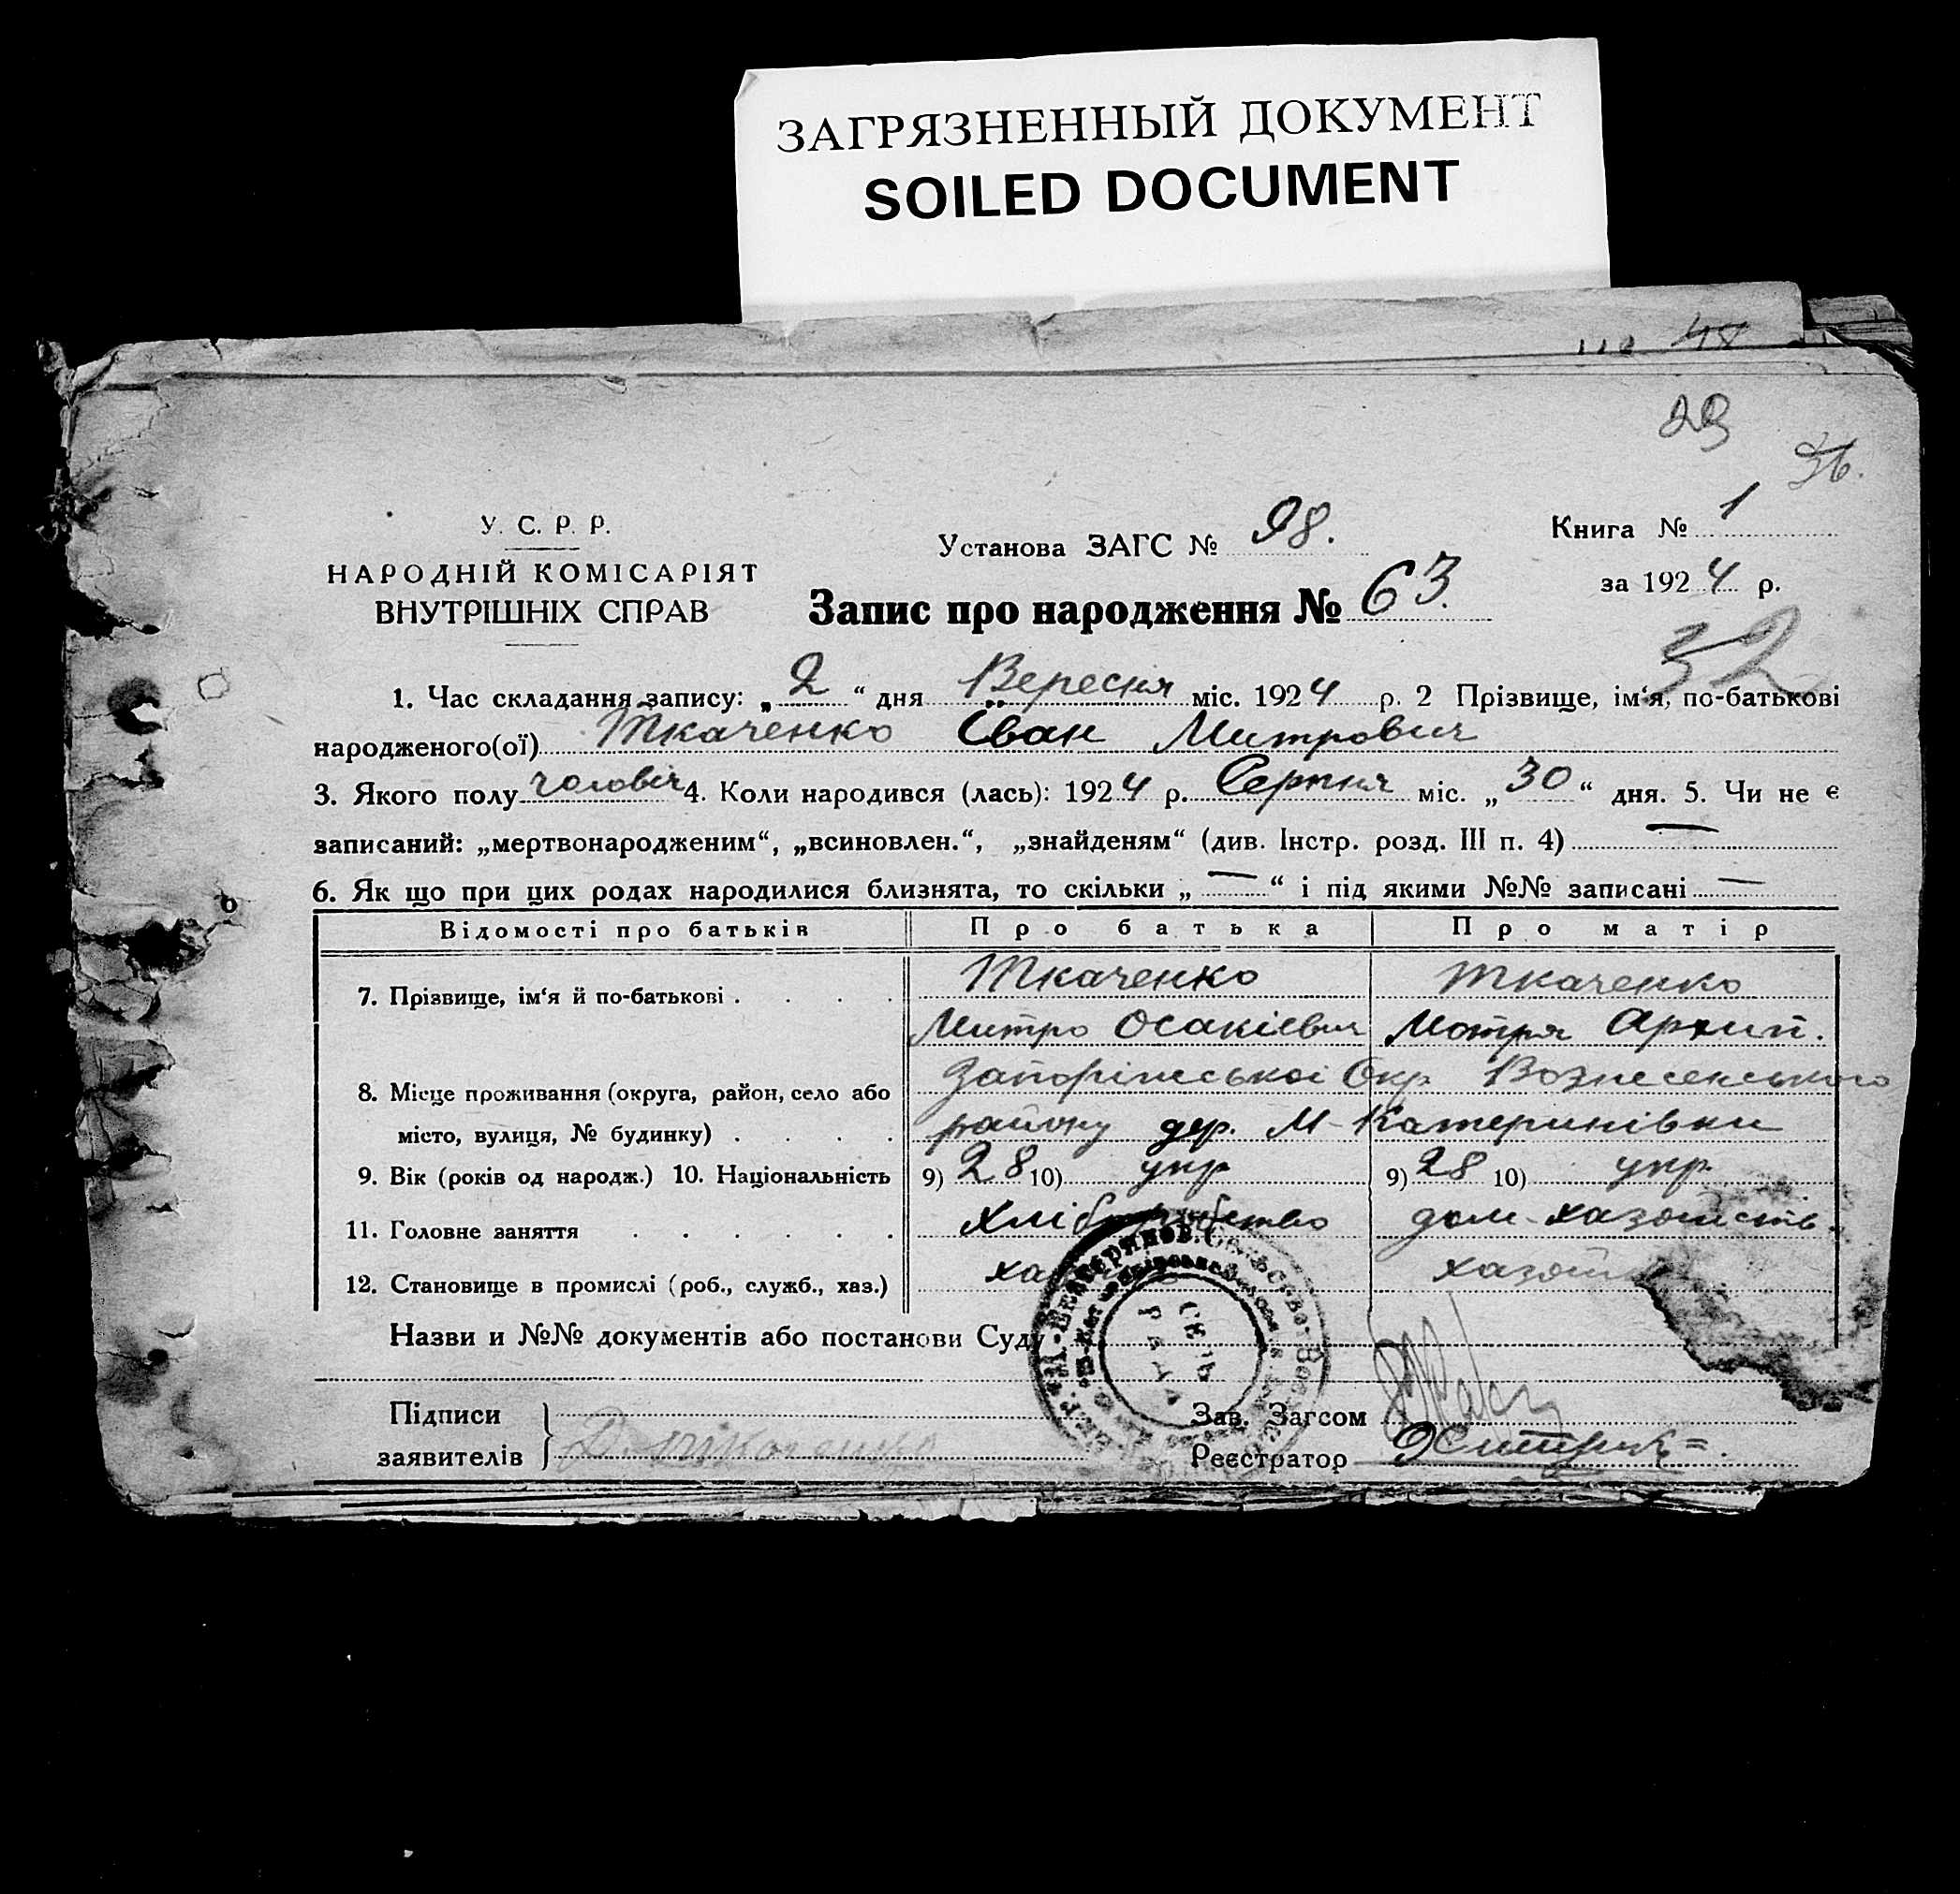 ЗАГРЯЗНЕННЫЙ ДОКУМЕНТ
SOILED DOCUMENT
48
29
36.
У. С. Р. Р.
НАРОДНІЙ КОМІСАРІЯТ
ВНУТРІШНІХ СПРАВ
Установа ЗАГС № 98.
Книга № 1
за 1924 р.
Запис про народження № 63.
52
1. Час складання запису: „2“ дня Вересня міс. 1924 р. 2 Прізвище, ім‘я, по-батькові
народженого(ої) Ткаченко Іван Митрович
3. Якого полу чоловіч 4. Коли народився (лась): 1924 р. Серпня міс. „30“ дня. 5. Чи не є
записаний: „мертвонародженим“, „всиновлен.“, „знайденям“ (див. Інстр. розд. III п. 4) —
6. Як що при цих родах народилися близнята, то скільки „—“ і під якими №№ записані —
Відомості про батьків Про батька Про матір
7. Прізвище, ім‘я й по-батькові Ткаченко Ткаченко
Митро Осакієвич Мотря Архип.
8. Місце проживання (округа, район, село або Запоріжської Окр Вознесенського
місто, вулиця, № будинку) району дер. М-Катеринівки
9. Вік (років од народж.) 10. Національність 9) 28 10) укр 9) 28 10) укр
11. Головне заняття хліборобство дом-хазяйств.
12. Становище в промислі (роб., служб., хаз.)
Назви и №№ документів або постанови Суду
Підписи
заявителів Д. Ткаченко
Зав. Загсом
Реєстратор